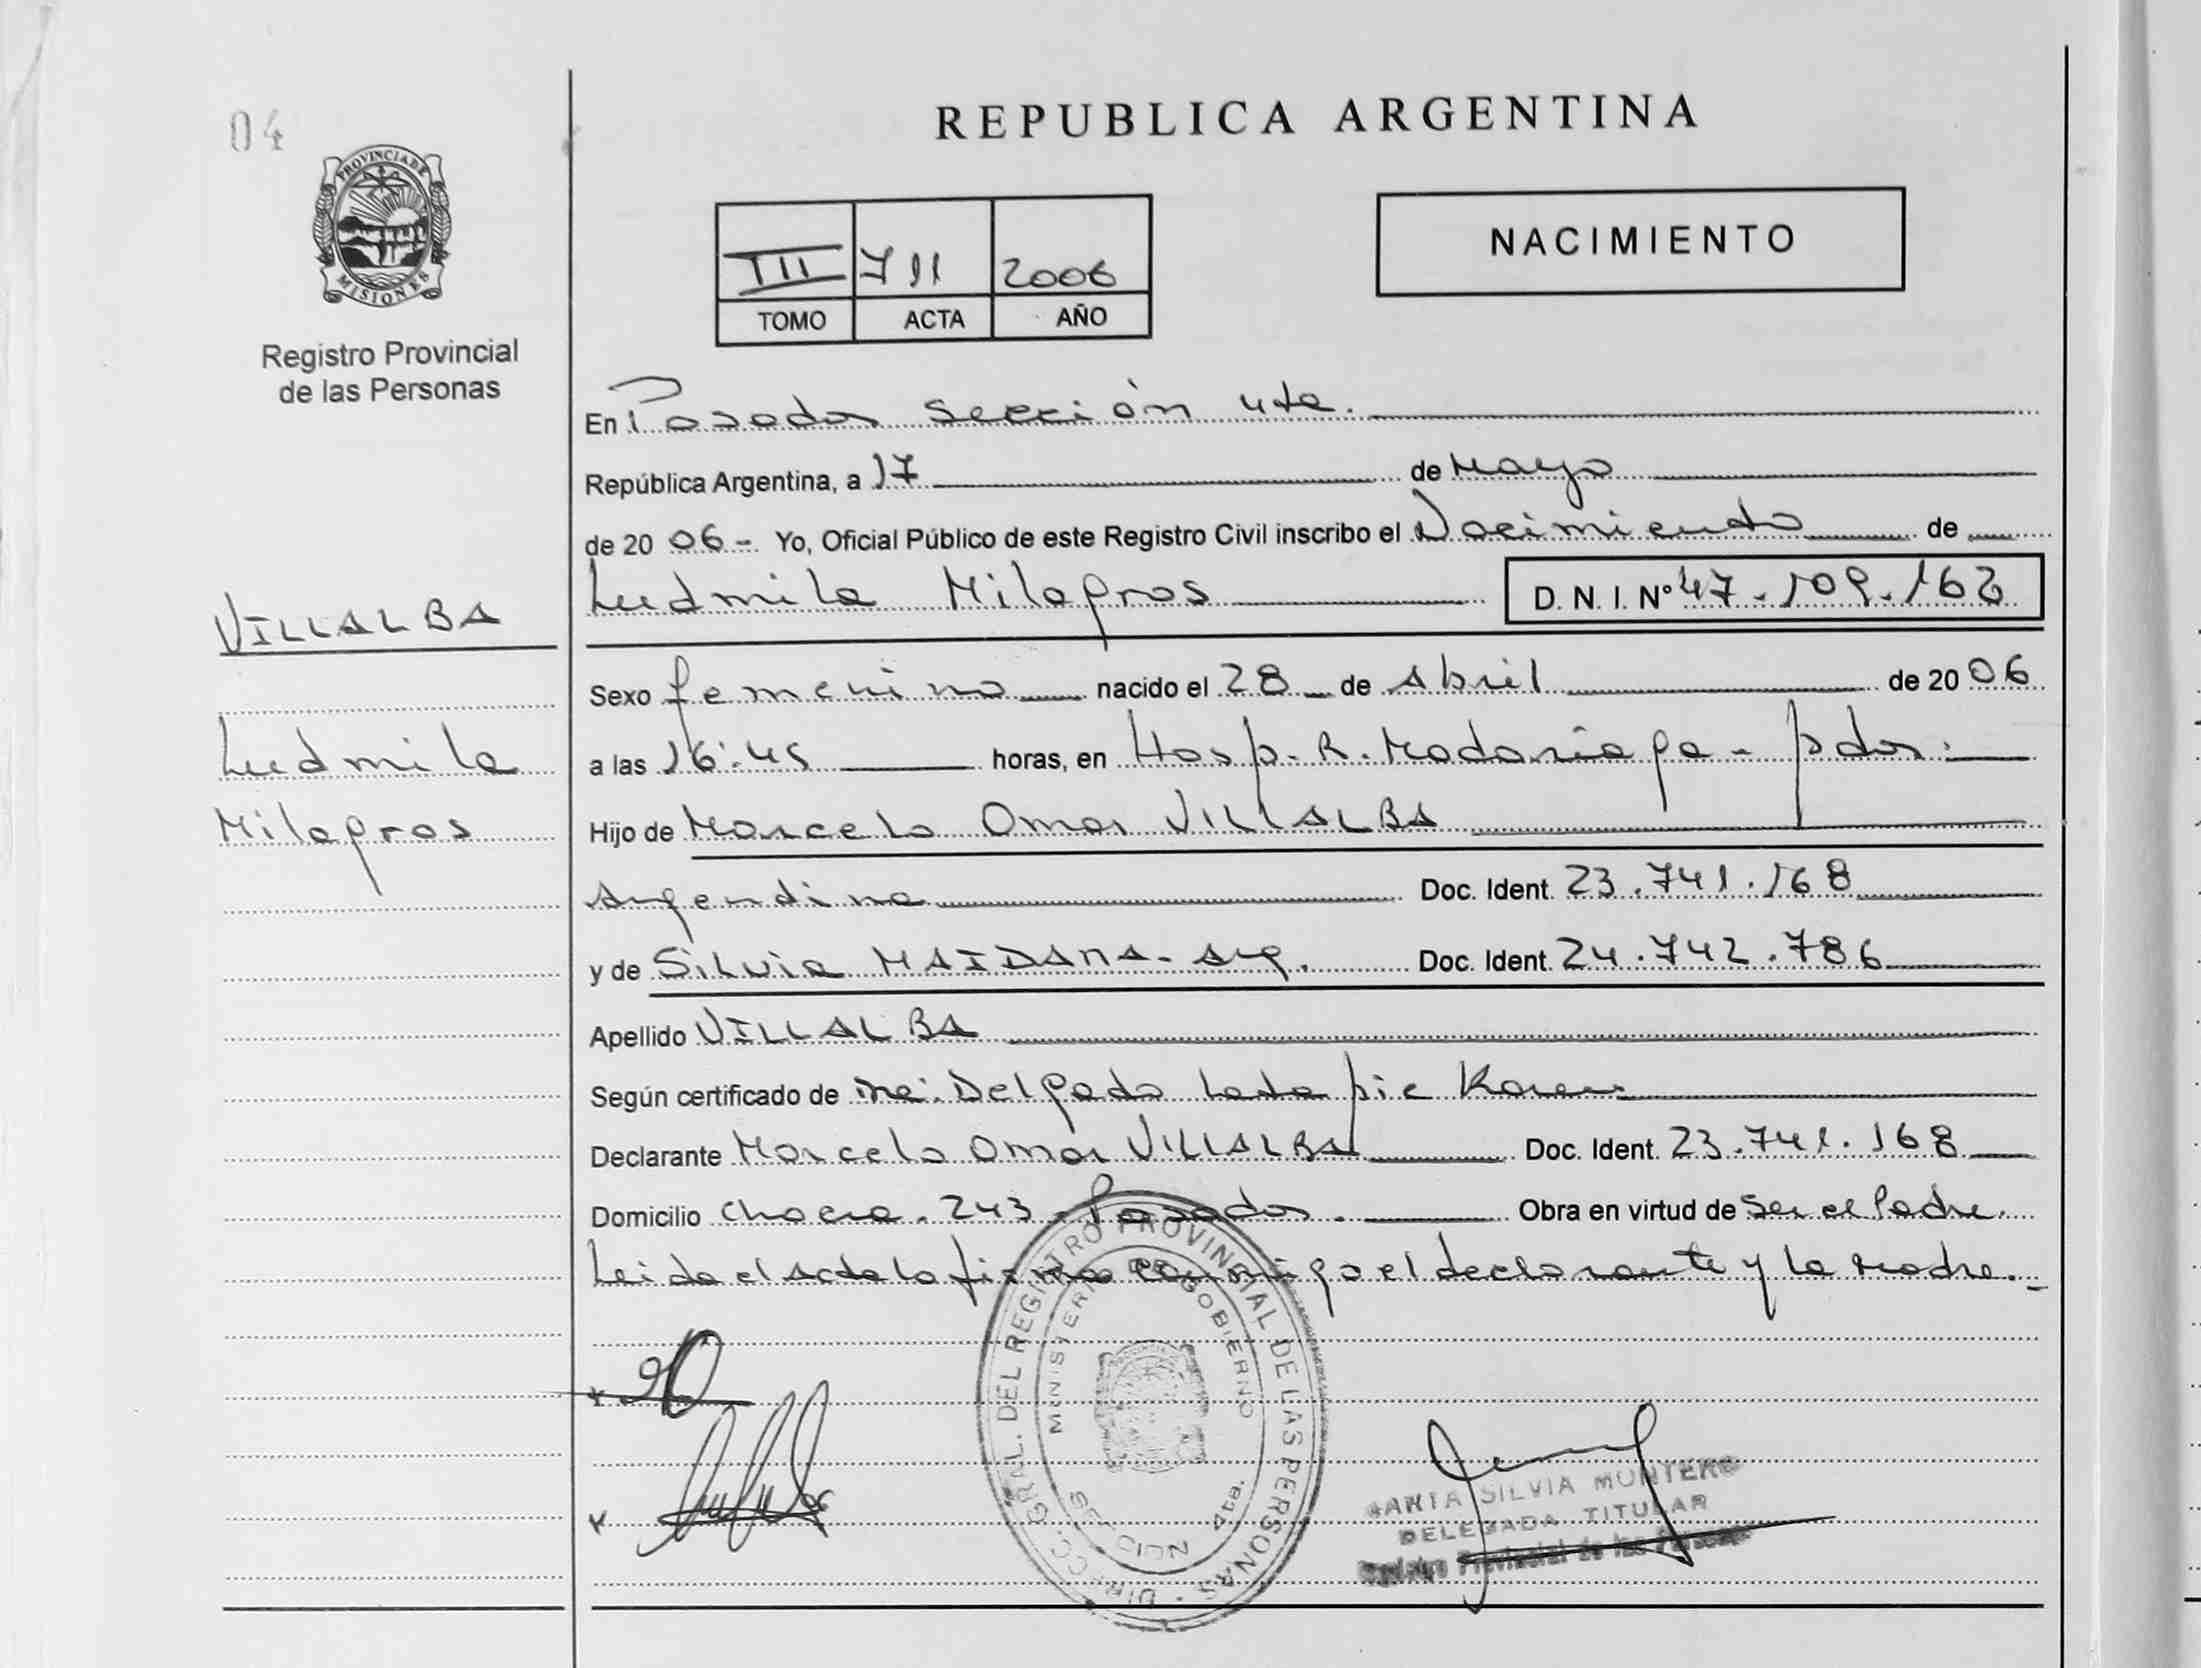 04
PROVINCIA DE
MISIONES
Registro Provincial
de las Personas
REPUBLICA ARGENTINA
III 711 2006
TOMO ACTA AÑO
NACIMIENTO
En Posadas sección 4ta.
República Argentina, a 17 de Mayo
de 20 06 - Yo, Oficial Público de este Registro Civil inscribo el Nacimiento de
Ludmila Milagros D. N. I. Nº 47.109.162
VILLALBA
Sexo femenino nacido el 28 de Abril de 20 06
Ludmila
a las 16:45 horas, en Hosp. R. Madariaga - Pdas.
Milagros
Hijo de Marcelo Omar VILLALBA
Argentina Doc. Ident. 23.741.168
y de Silvia MAIDANA - Arg. Doc. Ident. 24.742.786
Apellido VILLALBA
Según certificado de Delgado Karen
Declarante Marcelo Omar VILLALBA Doc. Ident. 23.741.168
Domicilio Chacra. 243 - Posadas. Obra en virtud de ser el Padre.
Leida el Acta la firma conmigo el declarante y la Madre.-
DIRECC. GRAL. DEL REGISTRO PROVINCIAL DE LAS PERSONAS
MINISTERIO DE GOBIERNO
SECCION 4ta.
SILVIA MONTERO
DELEGADA TITULAR
Registro Provincial de las Personas